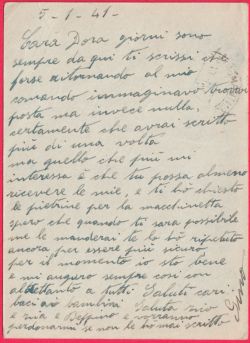 5-1-41-
Cara Dora giorni sono
sempre da qui ti scrissi che
forse ritornando al mio
comando immaginavo trovare
posta ma invece nulla.
certamente che avrai scritto
più di una volta
ma quello che più mi
interessa è che tu possa almeno
ricevere le mie, e ti ho chiesto
le pietrine per la macchinetta
spero che quando ti sara possibile
me le manderai te lo ho ripetuto
ancora per essere più sicuro
per il momento io sto bene
e mi auguro sempre così con
altrettanto a tutti Saluti cari
baci ai bambini Saluto zio
e zia e Beppino e vorranno
perdonarmi se non le ho mai scritto